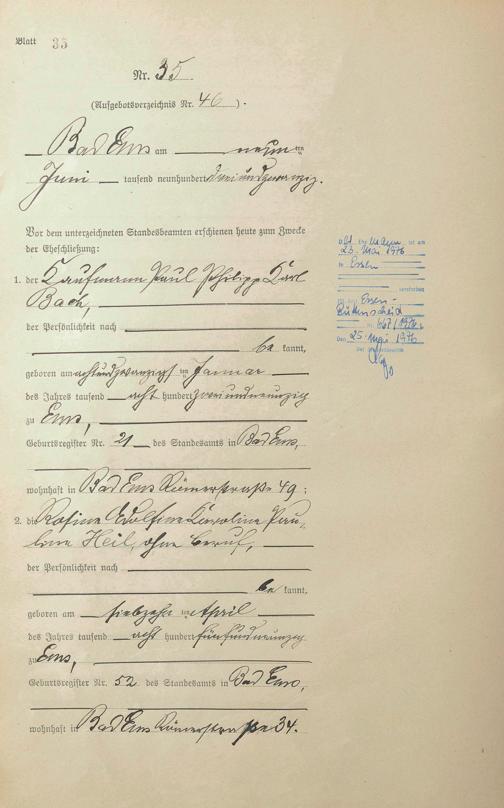 Blatt 35
Nr. 35.
(Aufgebotsverzeichnis Nr. 46).
Bad Ems am neunten
Juni tausend neunhundert dreiundzwanzig.
Vor dem unterzeichneten Standesbeamten erschienen heute zum Zwecke
der Eheschließung:
1. der Kaufmann Paul Philipp Karl
Bach,
der Persönlichkeit nach
be kannt,
geboren am achtundzwanzigsten Januar
des Jahres tausend acht hundert zweiundneunzig
zu Ems,
Geburtsregister Nr. 21 des Standesamts in Bad Ems,
wohnhaft in Bad Ems Römerstraße 49;
2. die Rosine Adolfine Karoline Pau-
line Heil, ohne Beruf,
der Persönlichkeit nach
be kannt,
geboren am siebzehnten April
des Jahres tausend acht hundert fünfundneunzig
zu Ems,
Geburtsregister Nr. 52 des Standesamts in Bad Ems,
wohnhaft in Bad Ems Römerstraße 34.
ist am
23. Mai 1976
in Essen
verstorben
Essen-
Rüttenscheid
Nr. /1976
Den 25. Mai 1976